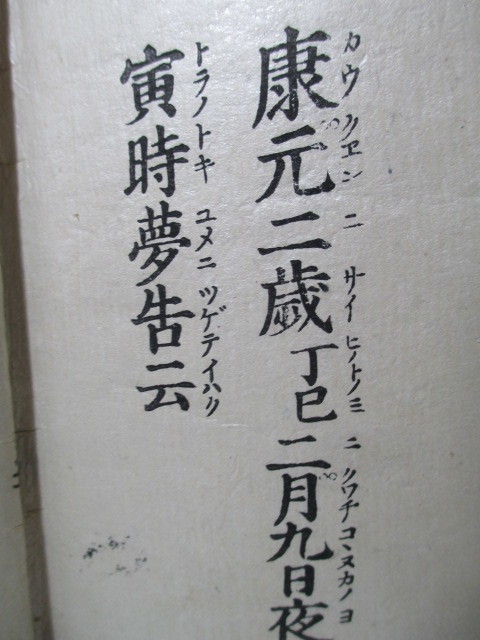 康元二歳丁巳二月九日夜
カウクヱンニサイヒノトノミニクワチコヽヌカノヨ
寅時夢告云
トラノトキユメニツゲテイハク